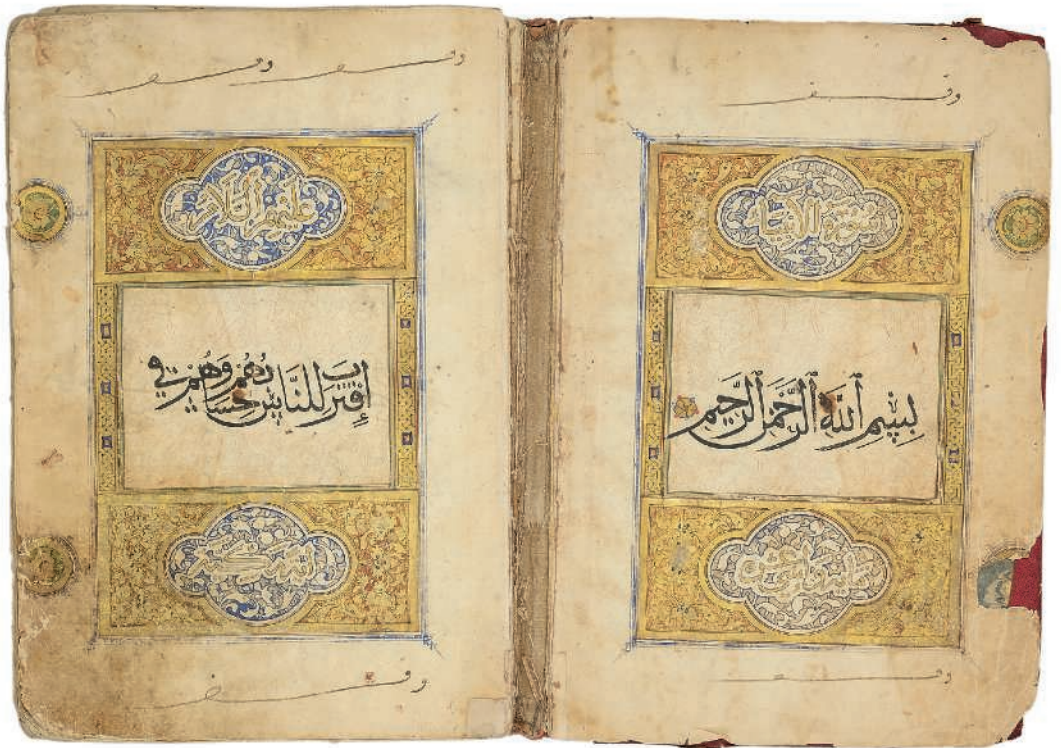 وقف
سورة الأنبياء
بِسْمِ ٱللَّهِ ٱلرَّحْمَٰنِ ٱلرَّحِيمِ
وقف
وقف وقف
عليهم السلام
إِقْتَرَبَ لِلنَّاسِ حِسَابُهُمْ وَهُمْ فِي
وقف